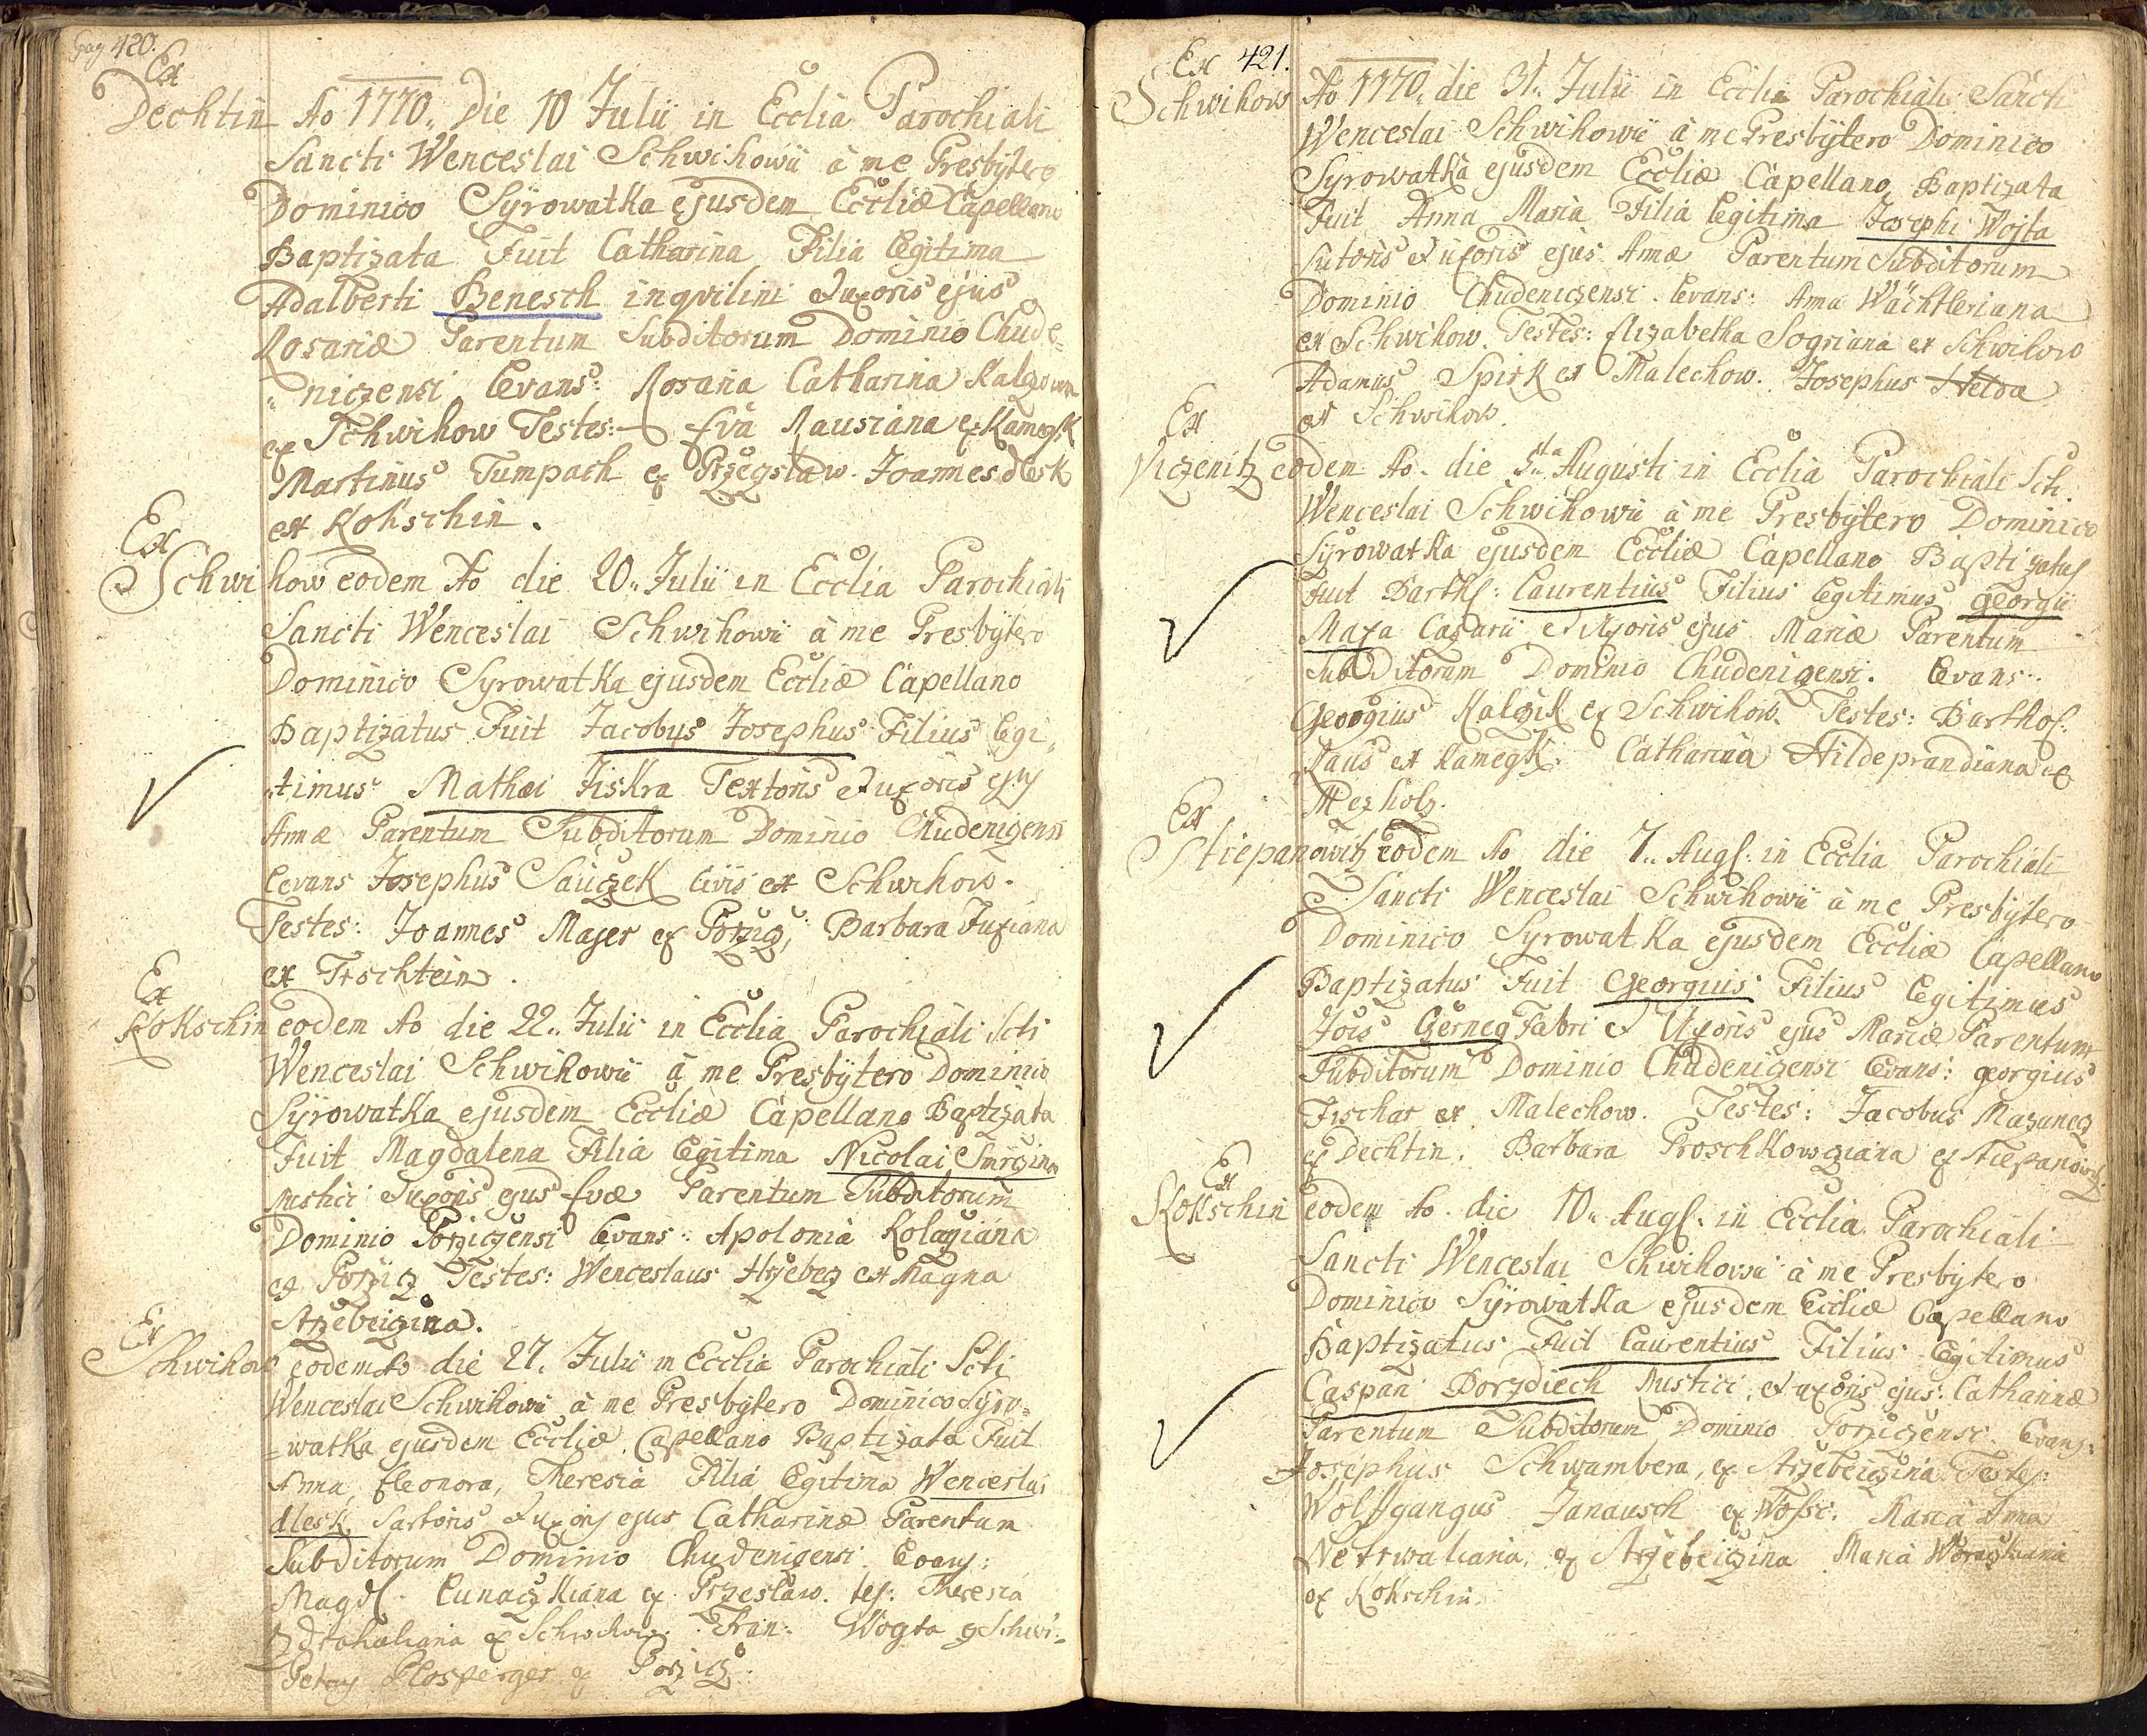 Pag 420.
Ex
Dechtin Ao 1770. Die 10 Julii in Ecclia Parochiali
Sancti Wenceslai Schwihowii à me Presbytero
Dominico Syrowatka ejusdem Eccliæ Capellano
Baptizata Fuit Catharina Filia legitima
Adalberti Benesch inqvilini & uxoris ejus
Rosariæ Parentum Subditorum Dominio Chude=
niczensi Levans: Rosaria Catharina
ex Schwihow Testes: Eva Rausiana ex Kamegk
Martinus Tumpach ex Przegslaw. Joannes dlesk
ex Kokschin.
Ex
Schwihow eodem Ao die 20. Julii in Ecclia Parochiali
Sancti Wenceslai Schwihowii à me Presbytero
Dominico Syrowatka ejusdem Eccliæ Capellano
Baptizatus Fuit Jacobus Josephus Filius legi
timus Mathæi Jiskra Textoris & uxoris ejus
Annæ Parentum Subditorum Dominio Chudeniczensi
Levans Josephus Sauczek Civis ex Schwihow.
Testes: Joannes Majer ex Porzicz, Barbara Fuxiana
ex Trschtein.
Ex
Kokschin eodem Ao die 22. Julii in Ecclia Parochiali Scti
Wenceslai Schwihowii à me Presbytero Dominico
Syrowatka ejusdem Eccliæ Capellano Baptizata
Fuit Magdalena Filia legitima Nicolai Smrczina
Rustici & uxoris ejus Evæ Parentum Subditorum
Dominio Porziczensi Levans: Apolonia
ex Porzicz Testes: Wenceslaus Hrzebecz ex Magna
Strzebeiczina.
Ex
Schwihow eodem Ao die 27. Julii in Ecclia Parochiali Scti
Wenceslai Schwihowii à me Presbytero Dominico Syro=
=watka ejusdem Eccliæ Capellano Baptizata Fuit
Anna Eleonora, Theresia Filia legitima Wenceslai
dlesk Sartoris & uxoris ejus Catharinæ Parentum
Subditorum Dominio Chudenicensi Levans:
Magdl. Lunaczkiana ex Przeslaw. tes: Theresia
ex Schwihow. Fran: Wogta ex Schwi=
Petrus Plosperger ex Porzicz.
421.
Ex
Schwihow Ao 1770. die 31. Julii in Ecclia Parochiali Sancti
Wenceslai Schwihowii à me Presbytero Dominico
Syrowatka ejusdem Eccliæ Capellano Baptizata
Fuit Anna Maria Filia legitima Josephi Wojta
Sutoris & uxoris ejus Annæ Parentum Subditorum
Dominio Chudeniczensi. Levans: Anna Wächtleriana
ex Schwihow. Testes: Elizabetha Sogriana ex Schwihow
Adamus Spirk ex Malechow. Josephus Helda
ex Schwihow.
Ex
Niczenitz eodem Ao. die 5ta Augusti in Ecclia Parochiali Scti.
Wenceslai Schwihowii à me Presbytero Dominico
Syrowatka ejusdem Eccliæ Capellano Baptizatus
Fuit Barthl: Laurentius Filius legitimus Georgii
Maxa Casarii & Uxoris ejus Mariæ Parentum
Subditorum Dominio Chudenizensi. Levans:
Georgius Kalczik ex Schwihow. Testes: Barthol:
Raus ex Kamegk. Catharina Hildeprandiana ex
Mezholz.
Ex
Stiepanowitz eodem Ao die 7. Aug. in Ecclia Parochiali
Sancti Wenceslai Schwihowii à me Presbytero
Dominico Syrowatka ejusdem Eccliæ Capellano
Baptizatus Fuit Georguis Filius legitimus
Jois Czerney Fabri & Uxoris ejus Mariæ Parentum
Subditorum Dominio Chudenizensi Levans: georgius
Fischer ex Malechow. Testes: Jacobus Mazanecz
ex Dechtin. Barbara Proschkowcziana ex Stiepanowitz.
Ex
Kokschin eodem Ao. die 10. Aug. in Ecclia Parochiali
Sancti Wenceslai Schwihowii à me Presbytero
Dominico Syrowatka ejusdem Eccliæ Capellano
Baptizatus Fuit Laurentius Filius legitimus
Caspari Borzdiech Rustici, & uxoris ejus Catharinæ
Parentum Subditorum Dominio Porziczensi. Levans:
Josephus Schwambera, ex Strzebeiczina Testes:
Wolffgangus Janausch ex Wosstr. Maria Anna
Netrwaliana, ex Strzebeiczina Maria Woraczkiana
ex Kokschin.